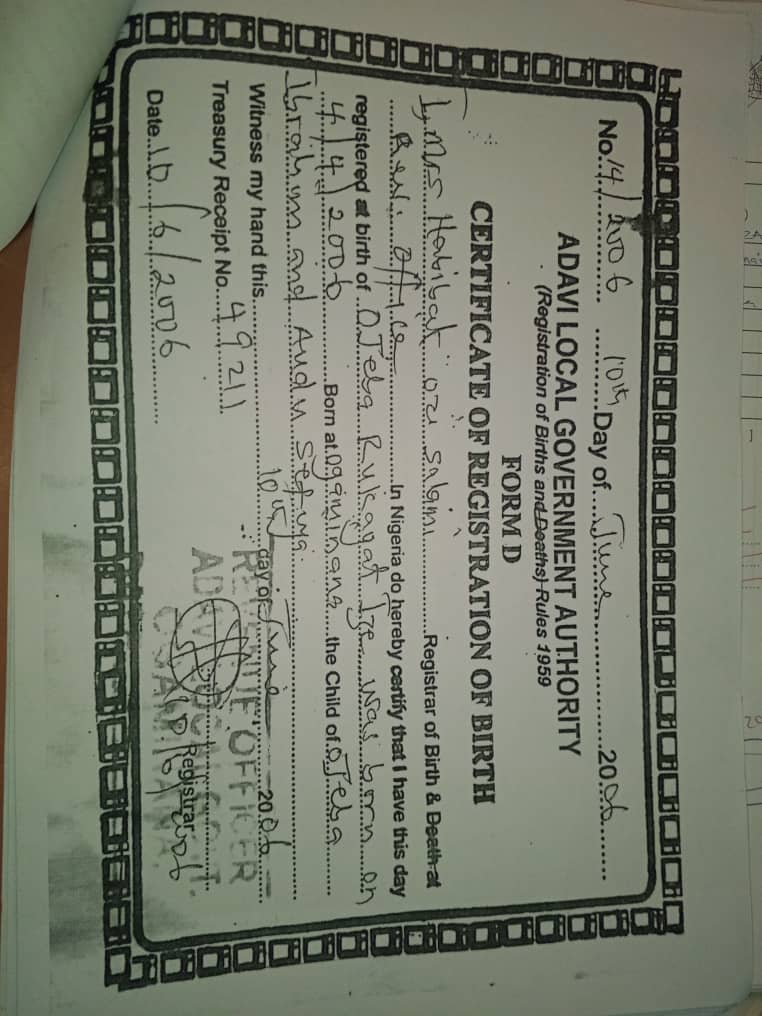 No. 14/2006 10th Day of June 2006
ADAVI LOCAL GOVERNMENT AUTHORITY
(Registration of Births and Deaths) Rules 1959
FORM D
CERTIFICATE OF REGISTRATION OF BIRTH
I, Mrs Habibat ozi Salami Registrar of Birth & Death at
Rev. Office In Nigeria do hereby certify that I have this day
registered at birth of OJeba Rukayat Ize was born on
4/4/2006 Born at Ogaminana the Child of OJeba
Ibrahim and Audu Sefiya.
Witness my hand this 10th day of June 2006
Treasury Receipt No. 49211
REVENUE OFFICER
ADAVI LOCAL GOVT.
OGAMINANA
Registrar
10/6/2006
Date 10/6/2006